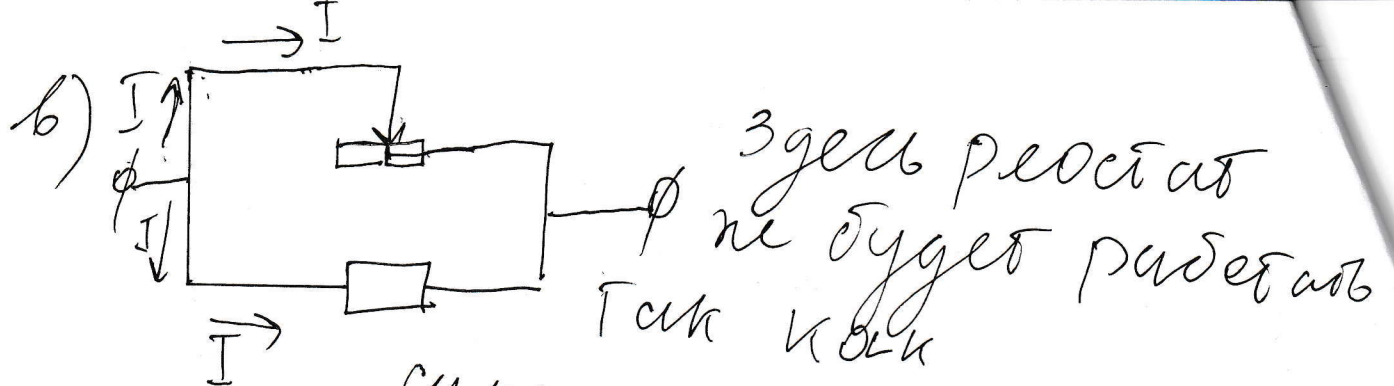 I
в) I
I
I
Здесь реостат
не будет работать
так как